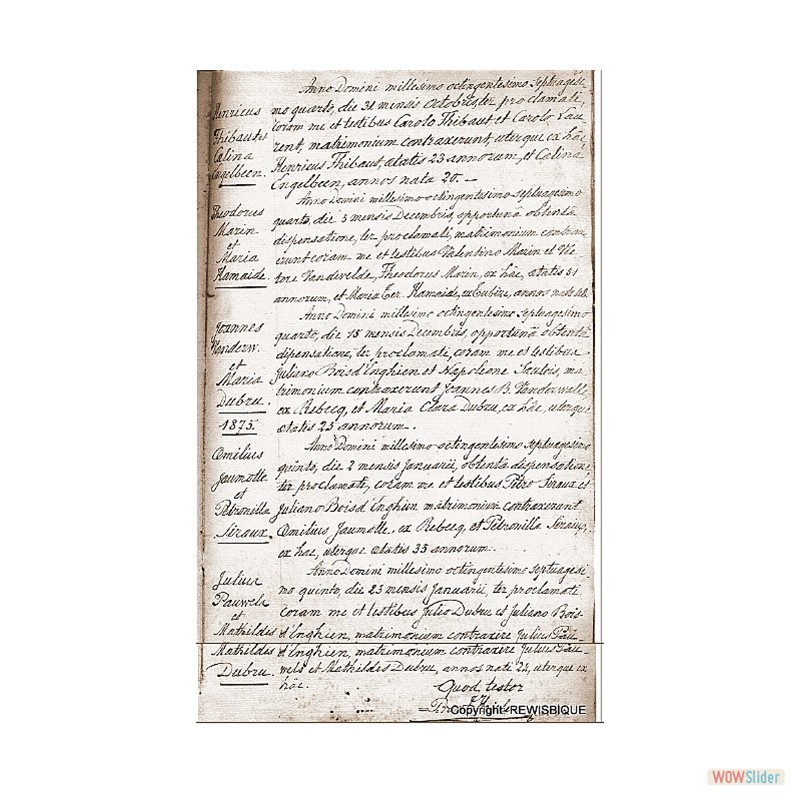 Anno Domini millesimo octingentesimo septuagesi
mo quarto, die 31 mensis Octobris, ter proclamati,
coram me et testibus Carolo Thibaut et Carolo Lau
rent, matrimonium contraxerunt, uterque ex hâc
Henricus Thibaut, ætatis 23 annorum, et Celina
Engelbeen, annos nata 20. —
Henricus
Thibaut et
Celina
Engelbeen.
Anno Domini millesimo octingentesimo septuagesimo
quarto, die 5 mensis Decembris, opportunâ obtentâ
dispensatione, ter proclamati, matrimonium contrax
erunt coram me et testibus Valentino Marin et Vic
tore Vandevelde, Theodorus Marin, ex hâc, ætatis 31
annorum, et Maria Ter. Hamaide, ex Tubize, annos nata
Theodorus
Marin
et
Maria
Hamaide.
Anno Domini millesimo octingentesimo septuagesimo
quarto, die 15 mensis Decembris, opportunâ obtentâ
dipensatione, ter proclamati, coram me et testibus
Juliano Boisd'Enghien et Napoleone ma
trimonium contraxerunt Joannes B. Vanderwalle
ex Rebecq, et Maria Clara Dubru, ex hâc, uterque
ætatis 25 annorum.
Joannes
Vanderw.
et
Maria
Dubru.
1875.
Anno Domini millesimo octingentesimo septuagesimo
quinto, die 2 mensis Januarii, obtenta dispensatione,
ter proclamati, coram me et testibus Petro Siraux et
Juliano Boisd'Enghien matrimonium contraxerunt
Œmilius Jaumotte, ex Rebecq, et Petronilla Siraux,
ex hac, uterque ætatis 35 annorum.
Œmilius
Jaumotte
et
Petronilla
Siraux.
Anno Domini millesimo octingentesimo septuagesi
mo quinto, die 23 mensis Januarii, ter proclamati
coram me et testibus Julio Dubru et Juliano Bois-
d'Enghien, matrimonium contraxere Julius Pau
d'Enghien, matrimonium contraxere Julius Pau
wels et Mathildes Dubru, annos nati 24, uterque ex
hâc.
Julius
Pauwels
et
Mathildes
Mathildes
Dubru.
Quod testor
Copyright-REWISBIQUE
WOWSlider